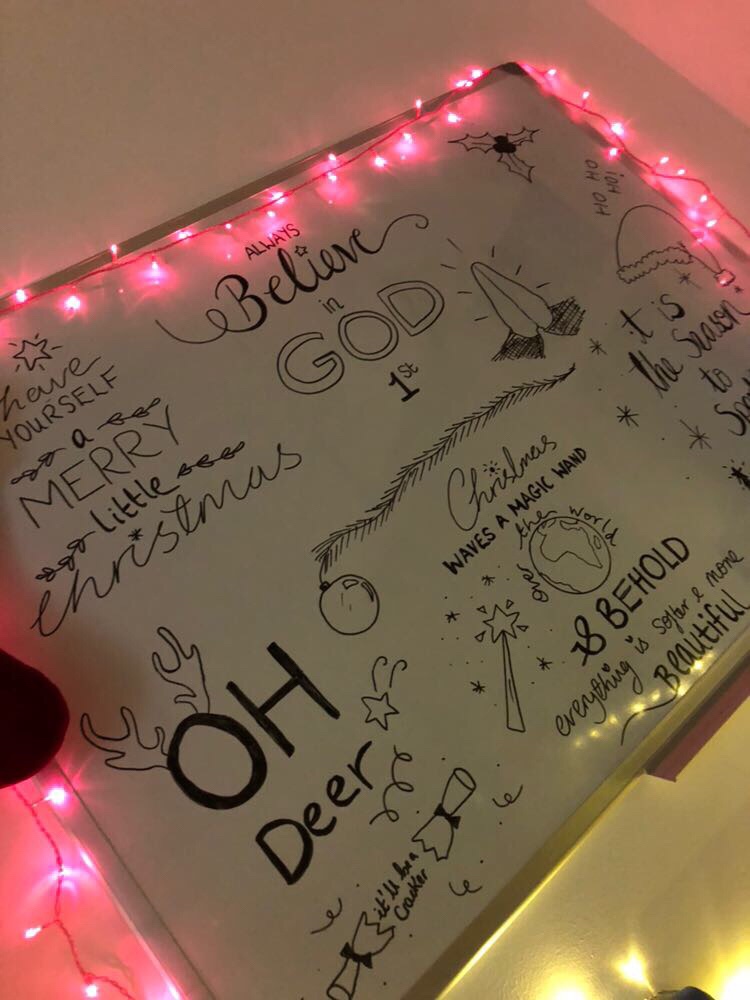 ALWAYS
Believe
in
GOD
1st
HO HO
HO!
it is
the Season
to
have
YOURSELF
a
MERRY
little
christmas
Christmas
WAVES A MAGIC WAND
over the world
& BEHOLD
everything is softer & more
Beautiful
OH
Deer
it'll be a
Cracker